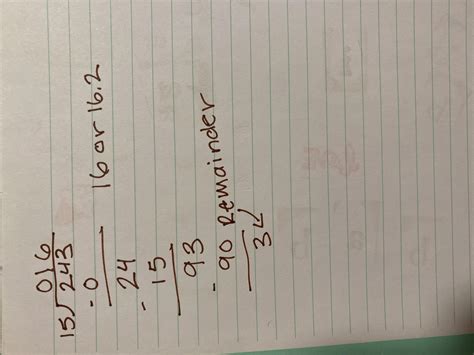 016
15√243
- 0 16 or 16.2
24
- 15
93
- 90 Remainder
3